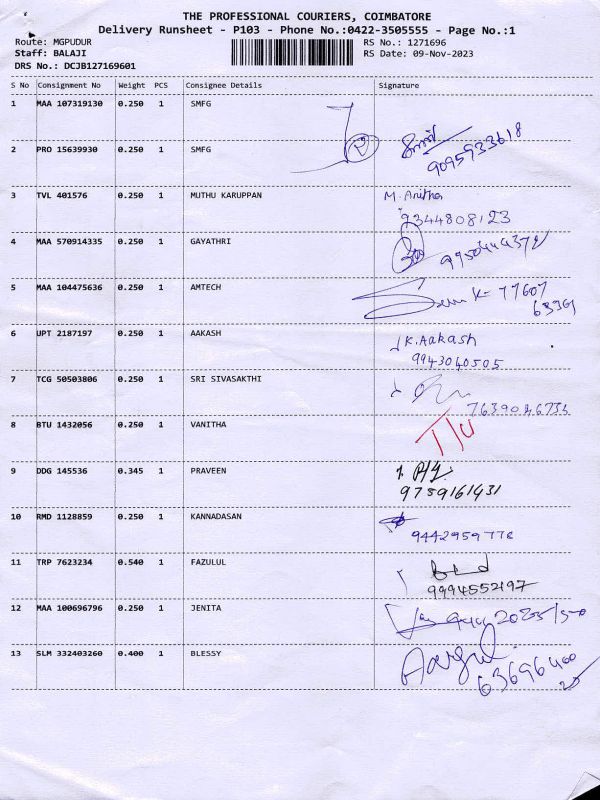 THE PROFESSIONAL COURIERS, COIMBATORE
Delivery Runsheet - P103 - Phone No.:0422-3505555 - Page No.:1
Route: MGPUDUR RS No.: 1271696
Staff: BALAJI RS Date: 09-Nov-2023
DRS No.: DCJB127169601
S No Consignment No Weight PCS Consignee Details Signature
1 MAA 107319130 0.250 1 SMFG
2 PRO 15639930 0.250 1 SMFG
9095933618
3 TVL 401576 0.250 1 MUTHU KARUPPAN M. Anitha
9344808123
4 MAA 570914335 0.250 1 GAYATHRI
5 MAA 104475636 0.250 1 AMTECH K- 77607
6 UPT 2187197 0.250 1 AAKASH K. Aakash
9943040505
7 TCG 50503806 0.250 1 SRI SIVASAKTHI
8 BTU 1432056 0.250 1 VANITHA
9 DDG 145536 0.345 1 PRAVEEN
9759161431
10 RMD 1128859 0.250 1 KANNADASAN
9442959778
11 TRP 7623234 0.540 1 FAZULUL
9994552197
12 MAA 100696796 0.250 1 JENITA
13 SLM 332403260 0.400 1 BLESSY